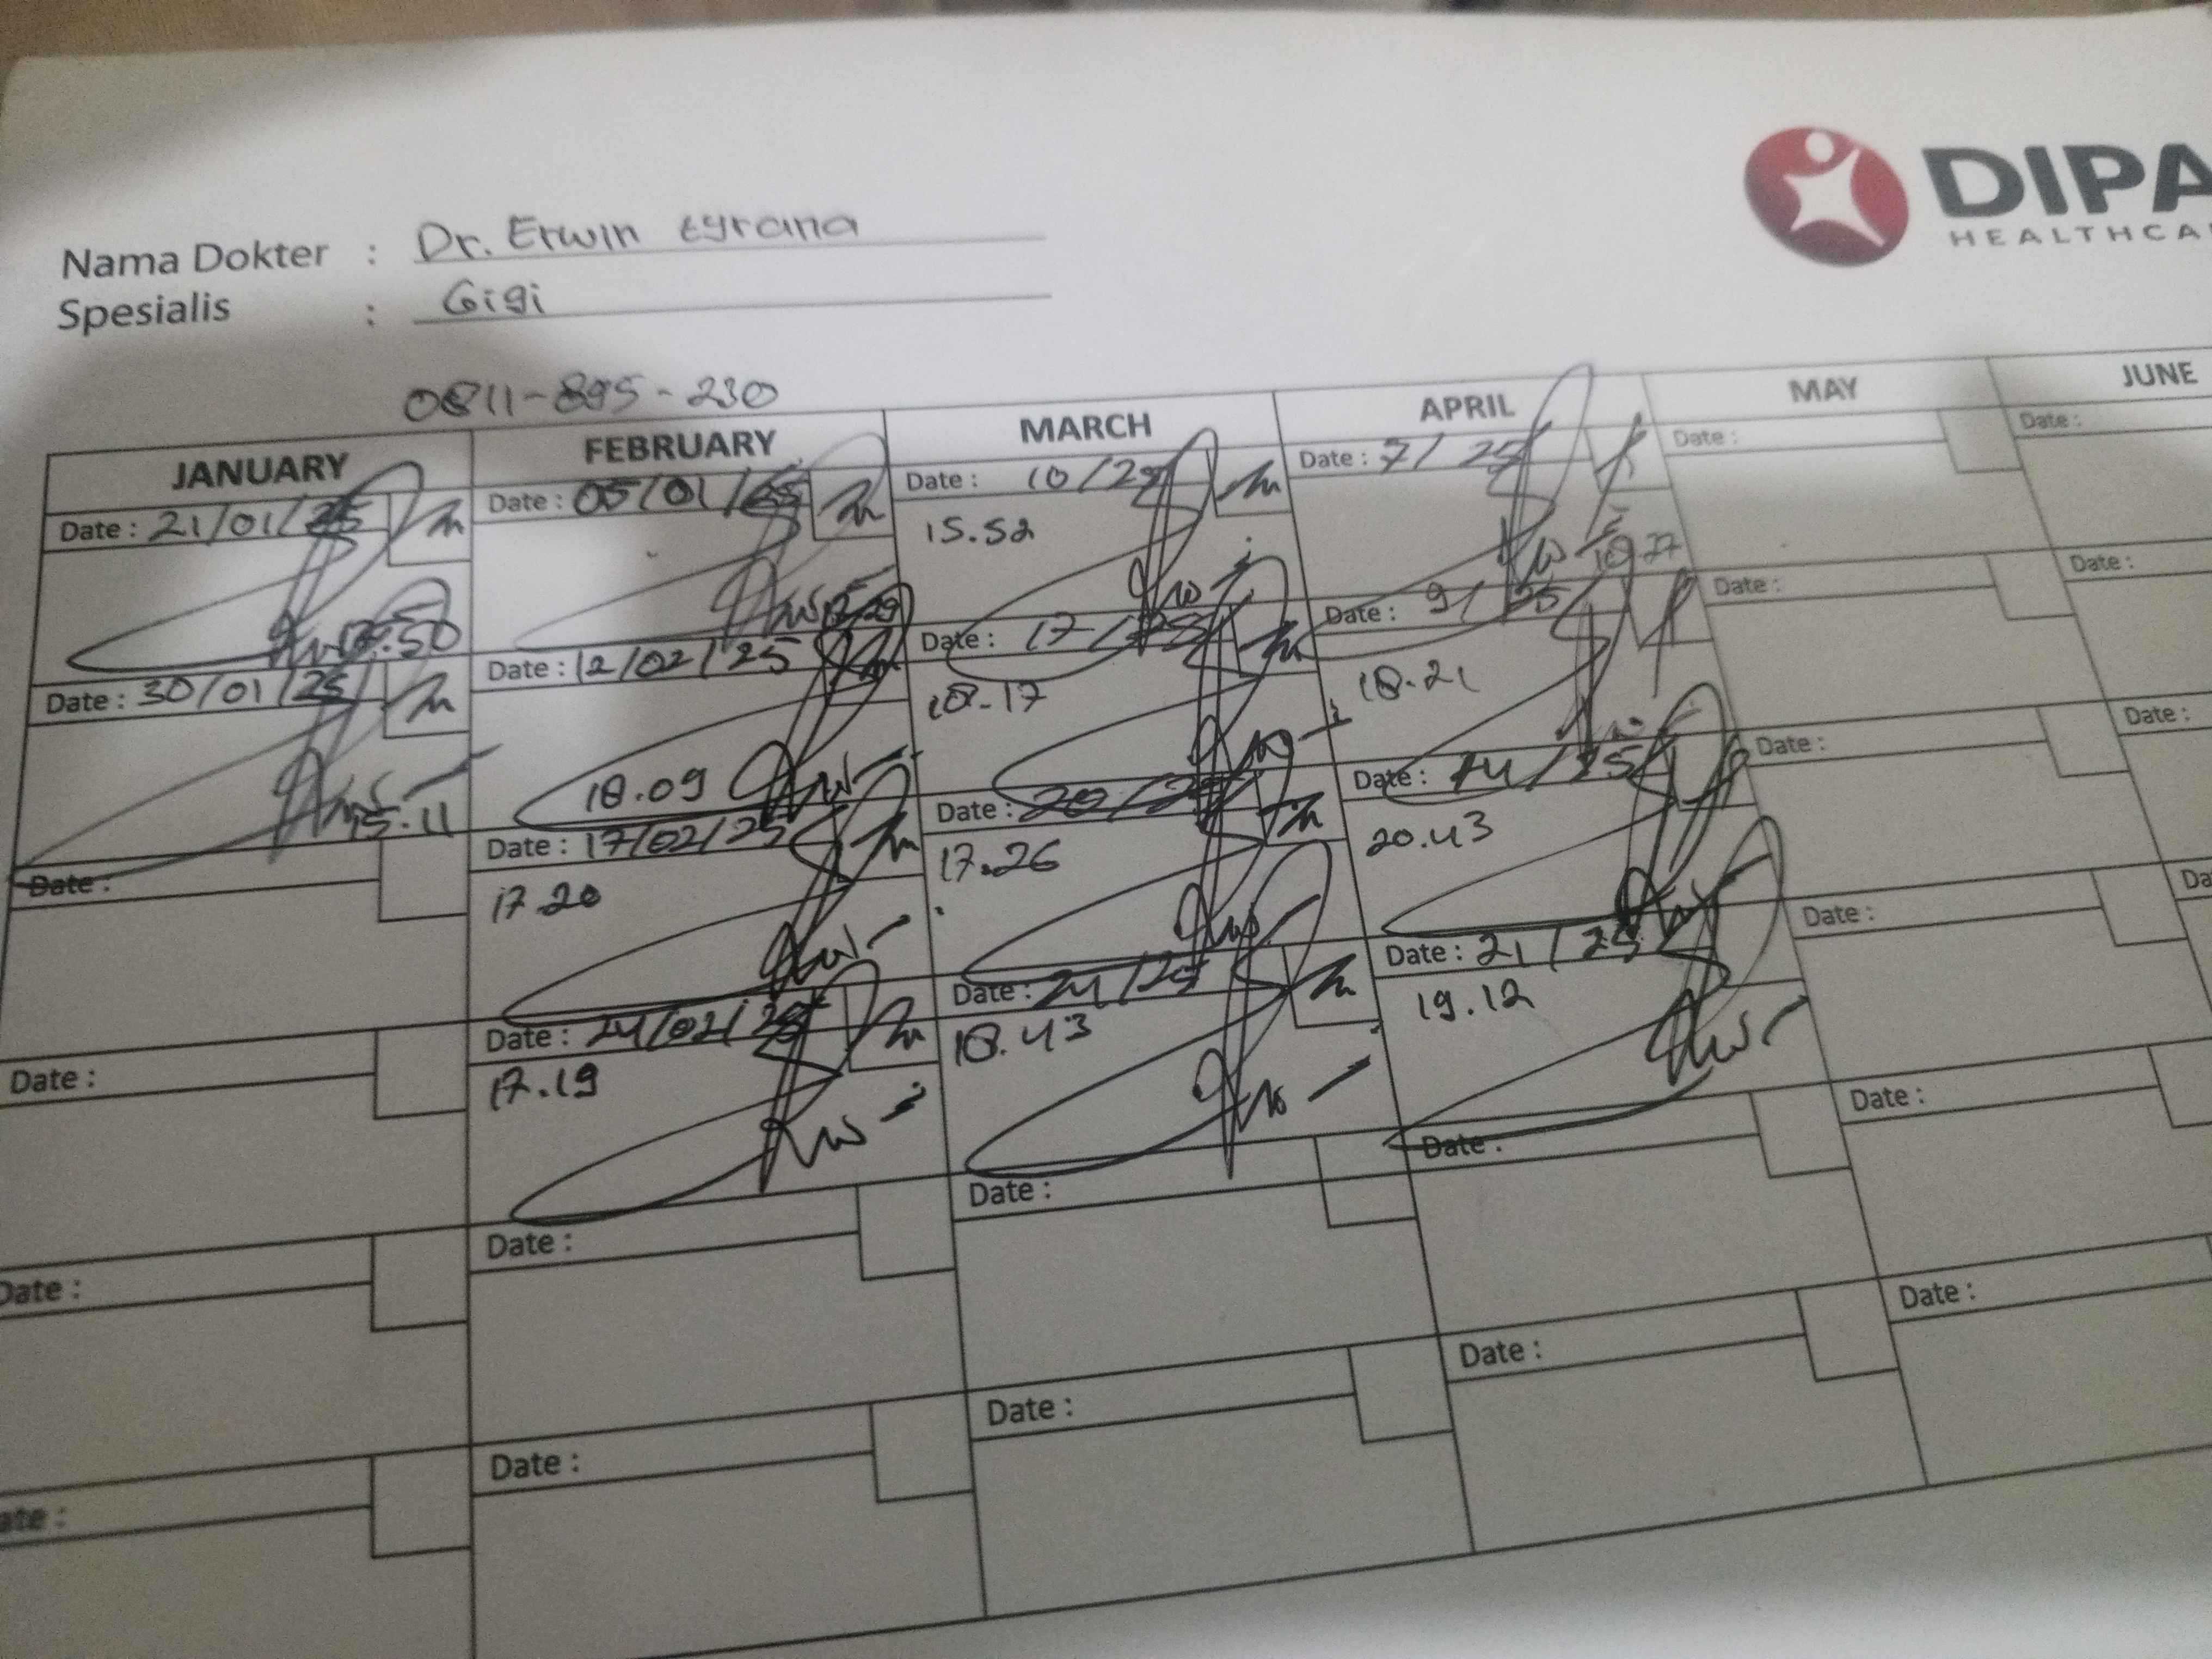 DIPA
HEALTHCA
Nama Dokter : Dr. Erwin tyrana
Spesialis : Gigi
0811-895-230
JANUARY FEBRUARY MARCH APRIL MAY JUNE
Date : 21/01/25 Date : 05/01/25 Date : 10/25 Date : 7/25 Date : Date :
15.52
Date : 30/01/25 Date : 12/02/25 Date : 17/25 Date : 9/25 Date : Date :
15.11 18.09 18.17 18.21
Date : Date : 17/02/25 Date : 20/25 Date : 14/25 Date : Date :
17.20 17.26 20.43
Date : Date : 24/02/25 Date : 24/25 Date : 21/25 Date : Da
17.19 18.43 19.12
Date : Date : Date : Date : Date :
ate : Date : Date : Date : Date :